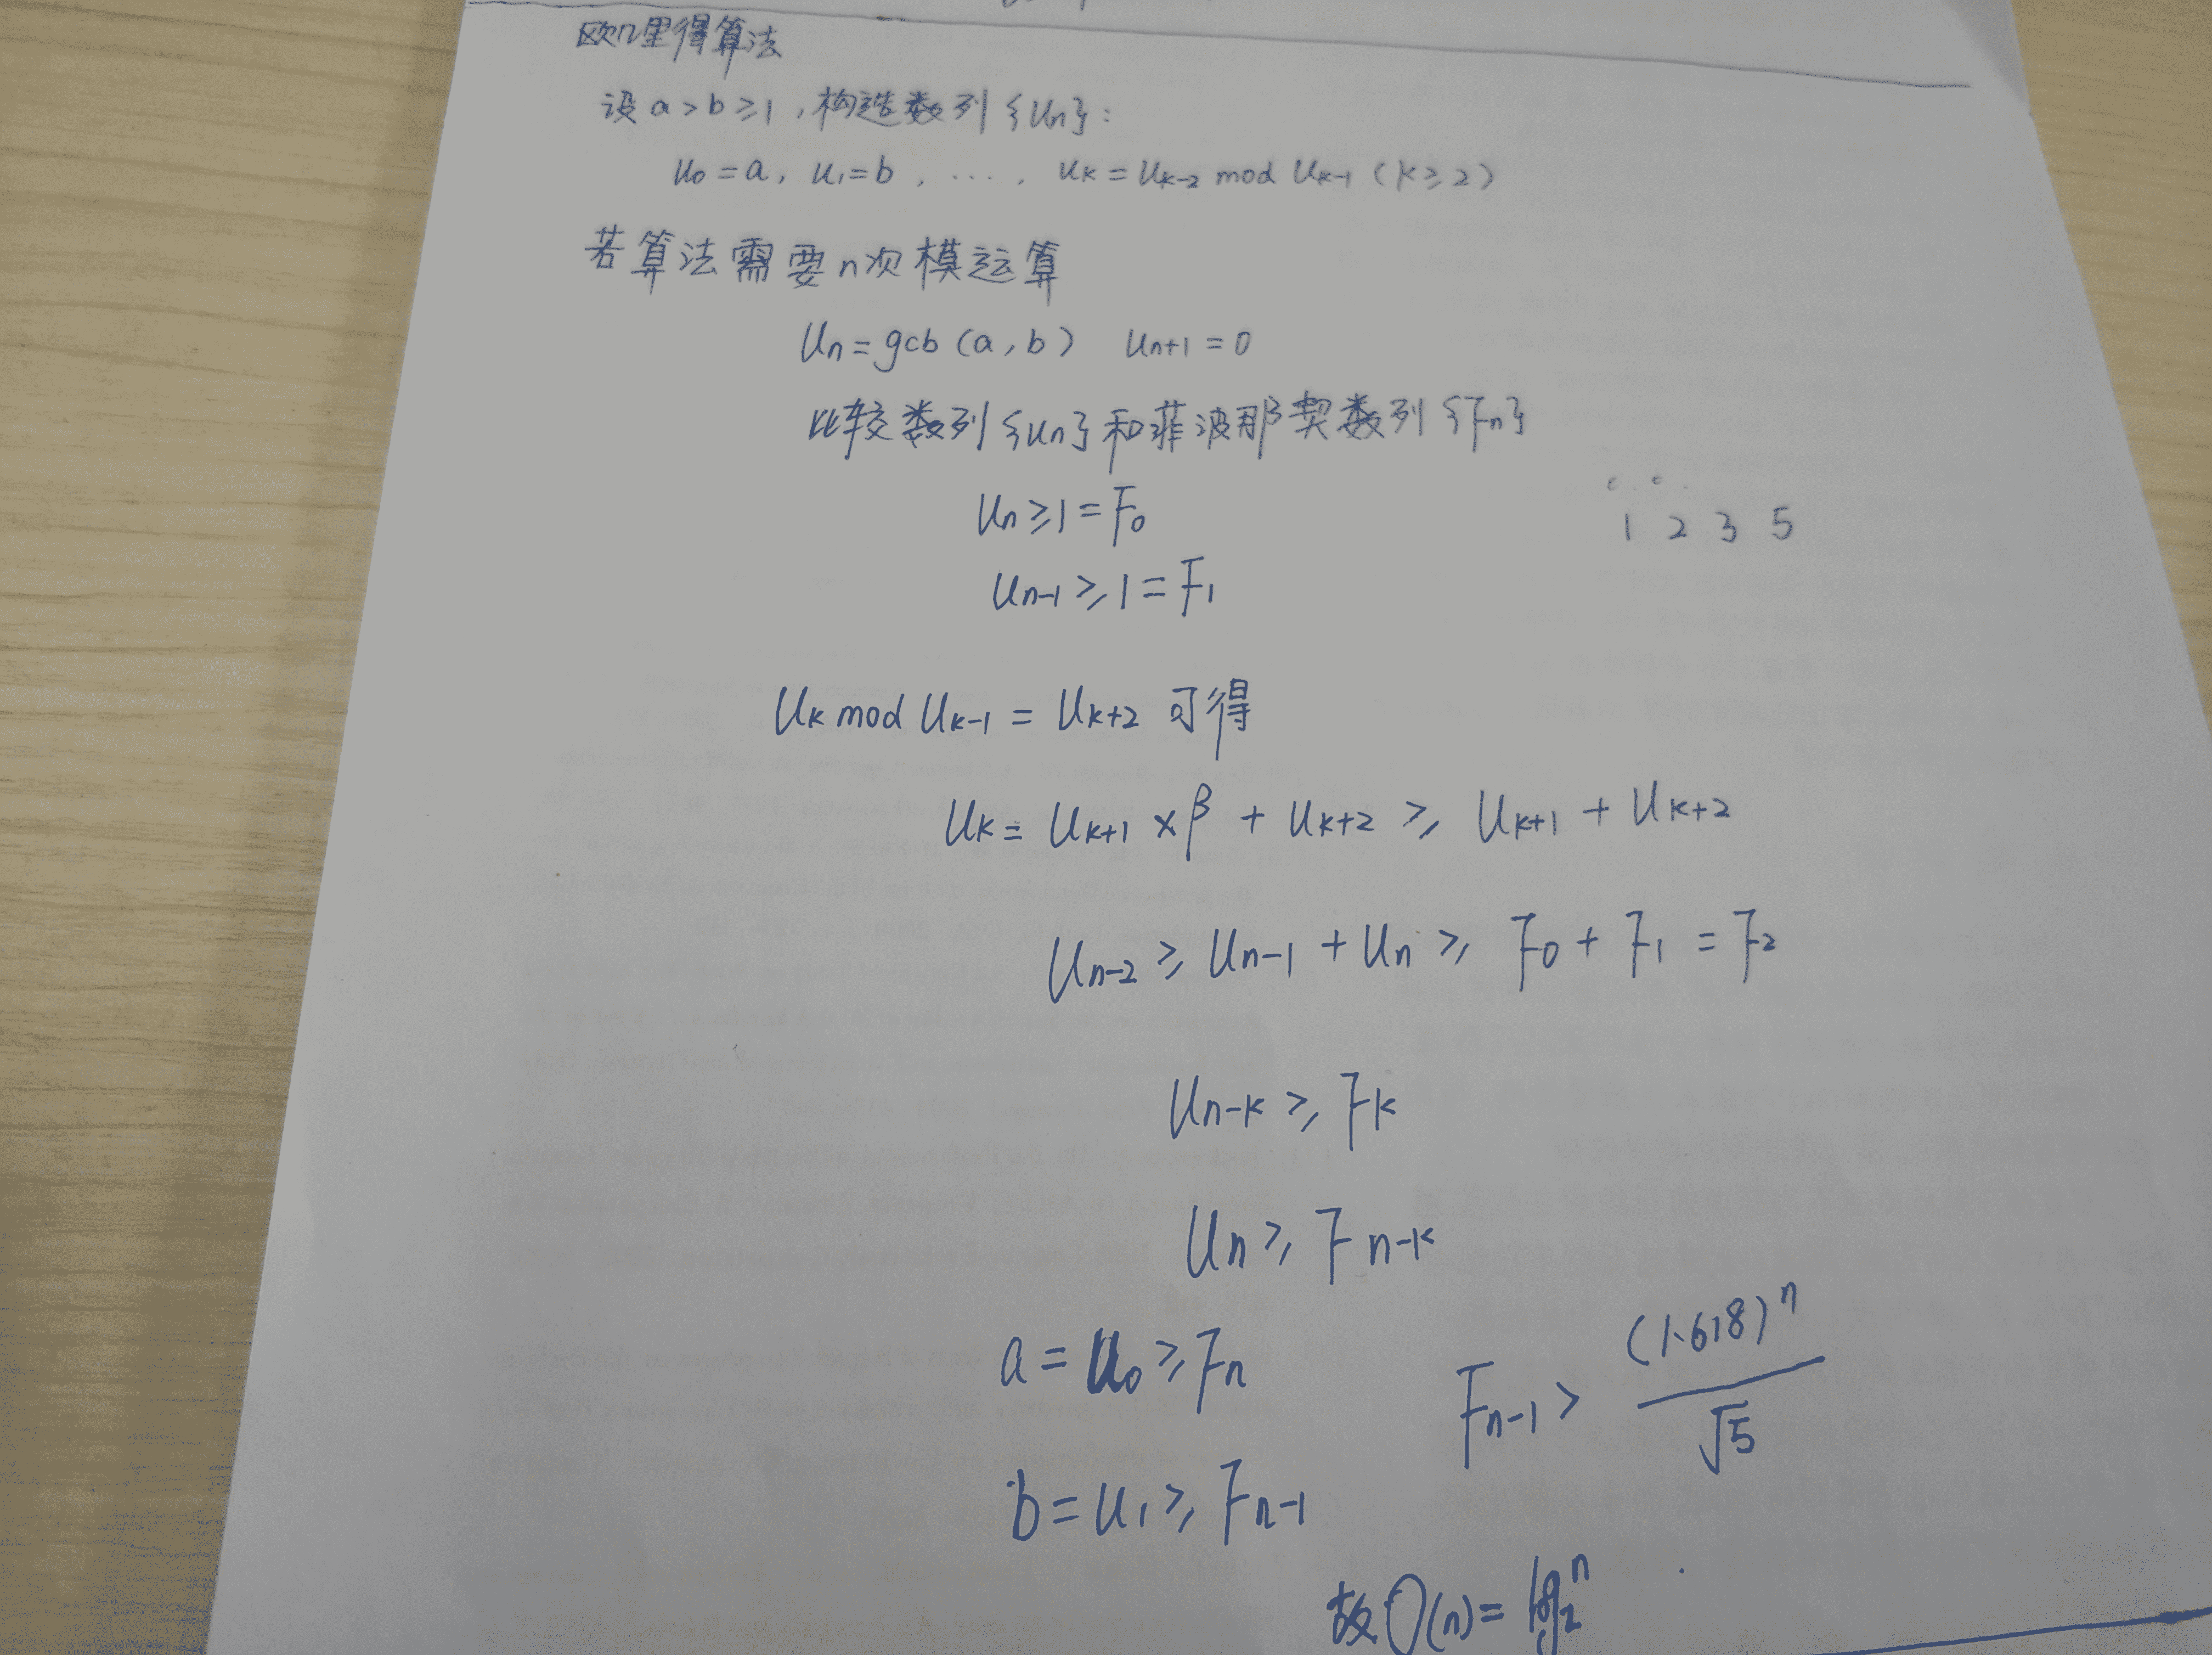 欧几里得算法
设 a > b ≥ 1 , 构造数列 {Un} :
U0 = a , U1 = b , ... , Uk = Uk-2 mod Uk-1 ( k ≥ 2 )
若算法需要n次模运算
Un = gcb (a , b) Un+1 = 0
比较数列{Un}和菲波那契数列{Fn}
Un ≥ 1 = F0
1 2 3 5
Un-1 ≥ 1 = F1
Uk mod Uk-1 = Uk+2 可得
Uk = Uk+1 × β + Uk+2 ≥ Uk+1 + Uk+2
Un-2 ≥ Un-1 + Un ≥ F0 + F1 = F2
Un-k ≥ Fk
Un ≥ Fn-k
a = U0 ≥ Fn
Fn-1 > (1.618)^n / √5
b = U1 ≥ Fn-1
故 O(n) = lg2^n